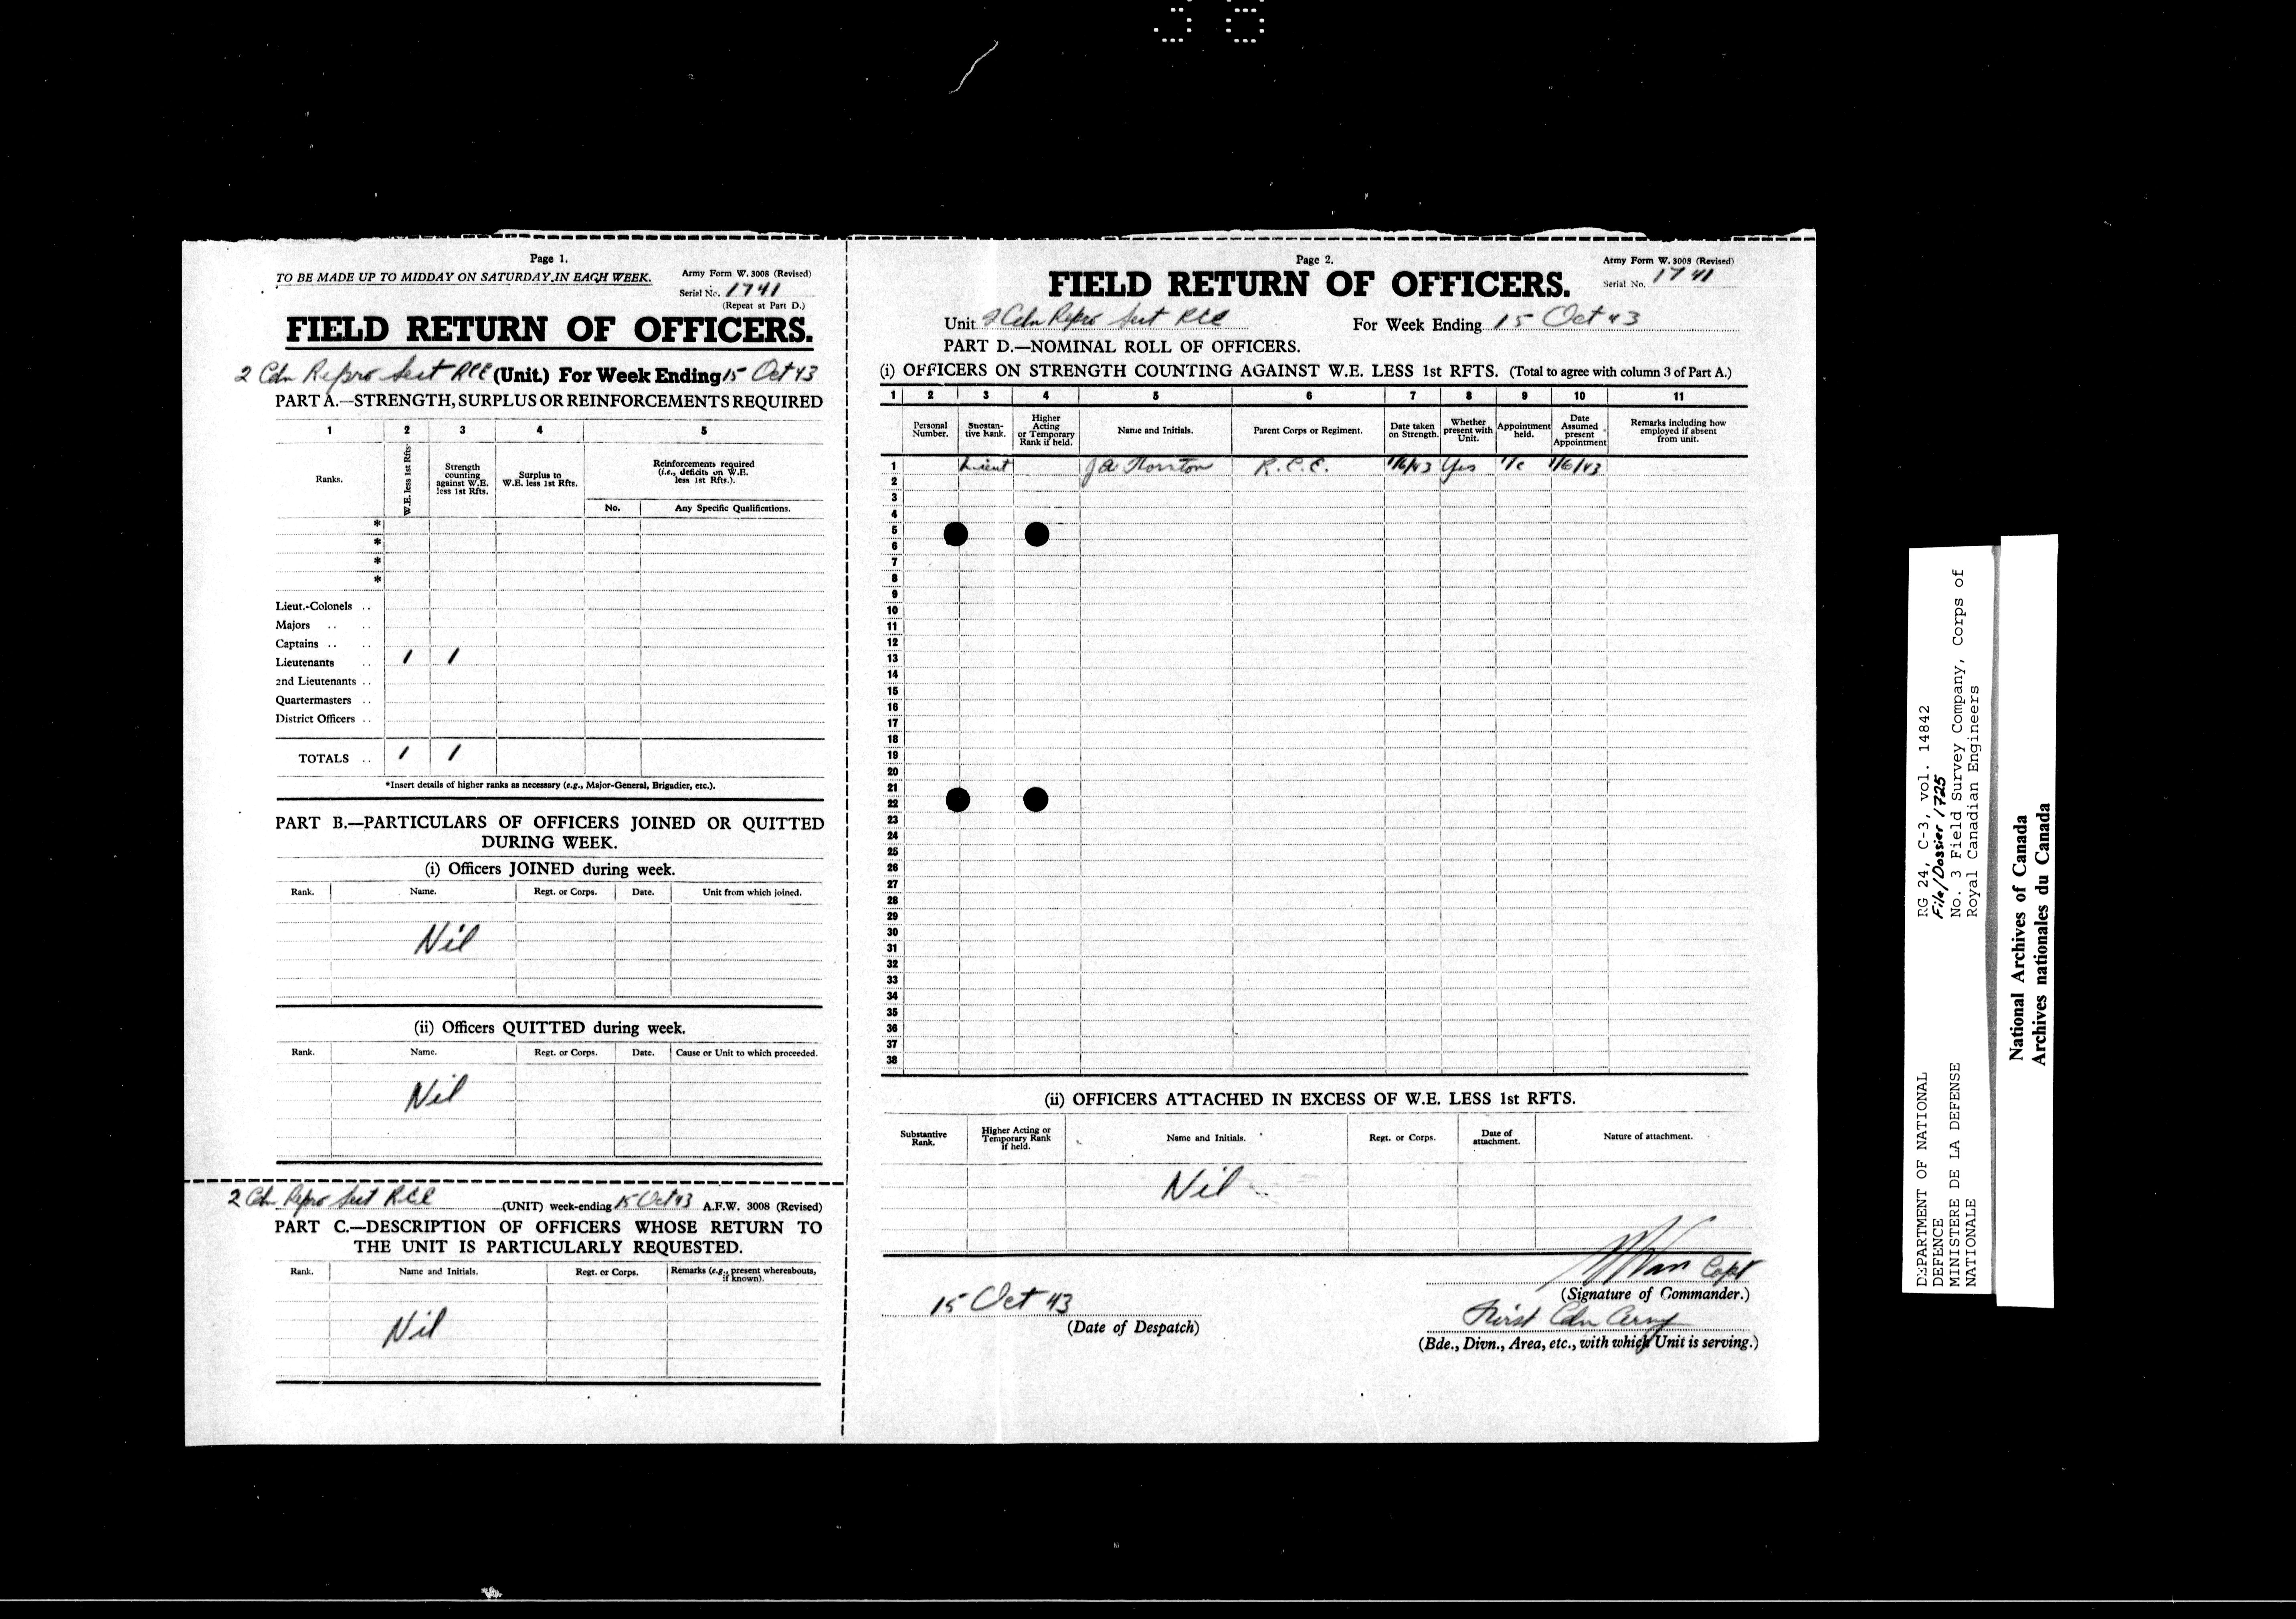 38
Page 1.
TO BE MADE UP TO MIDDAY ON SATURDAY IN EACH WEEK.
Army Form W. 3008 (Revised)
Serial No. 1741
(Repeat at Part D.)
FIELD RETURN OF OFFICERS.
2 Cdn Repro Sect RCE (Unit.) For Week Ending 15 Oct 43
PART A.—STRENGTH, SURPLUS OR REINFORCEMENTS REQUIRED
1 2 3 4 5
Ranks.
W.E. less 1st Rfts.
Strength counting against W.E. less 1st Rfts.
Surplus to W.E. less 1st Rfts.
Reinforcements required (i.e., deficits on W.E. less 1st Rfts.).
No. Any Specific Qualifications.
*
*
*
*
Lieut.-Colonels ..
Majors .. ..
Captains .. ..
Lieutenants .. 1 1
2nd Lieutenants ..
Quartermasters ..
District Officers ..
TOTALS .. 1 1
*Insert details of higher ranks as necessary (e.g., Major-General, Brigadier, etc.).
PART B.—PARTICULARS OF OFFICERS JOINED OR QUITTED
DURING WEEK.
(i) Officers JOINED during week.
Rank. Name. Regt. or Corps. Date. Unit from which joined.
Nil
(ii) Officers QUITTED during week.
Rank. Name. Regt. or Corps. Date. Cause or Unit to which proceeded.
Nil
2 Cdn Repro Sect RCE (UNIT) week-ending 15 Oct 43 A.F.W. 3008 (Revised)
PART C.—DESCRIPTION OF OFFICERS WHOSE RETURN TO
THE UNIT IS PARTICULARLY REQUESTED.
Rank. Name and Initials. Regt. or Corps. Remarks (e.g., present whereabouts, if known).
Nil
Page 2.
Army Form W. 3008 (Revised)
Serial No. 1741
FIELD RETURN OF OFFICERS.
Unit 2 Cdn Repro Sect RCE For Week Ending 15 Oct 43
PART D.—NOMINAL ROLL OF OFFICERS.
(i) OFFICERS ON STRENGTH COUNTING AGAINST W.E. LESS 1st RFTS. (Total to agree with column 3 of Part A.)
1 2 3 4 5 6 7 8 9 10 11
Personal Number.
Substantive Rank.
Higher Acting or Temporary Rank if held.
Name and Initials.
Parent Corps or Regiment.
Date taken on Strength.
Whether present with Unit.
Appointment held.
Date Assumed present Appointment
Remarks including how employed if absent from unit.
1 Lieut R.C.E. 1/6/43 Yes 1/6/43
2
3
4
5
6
7
8
9
10
11
12
13
14
15
16
17
18
19
20
21
22
23
24
25
26
27
28
29
30
31
32
33
34
35
36
37
38
(ii) OFFICERS ATTACHED IN EXCESS OF W.E. LESS 1st RFTS.
Substantive Rank.
Higher Acting or Temporary Rank if held.
Name and Initials.
Regt. or Corps.
Date of attachment.
Nature of attachment.
Nil
Capt
(Signature of Commander.)
15 Oct 43
(Date of Despatch)
First Cdn Army
(Bde., Divn., Area, etc., with which Unit is serving.)
DEPARTMENT OF NATIONAL
DEFENCE
MINISTERE DE LA DEFENSE
NATIONALE
RG 24, C-3, vol. 14842
File/Dossier 1725
No. 3 Field Survey Company, Corps of
Royal Canadian Engineers
National Archives of Canada
Archives nationales du Canada